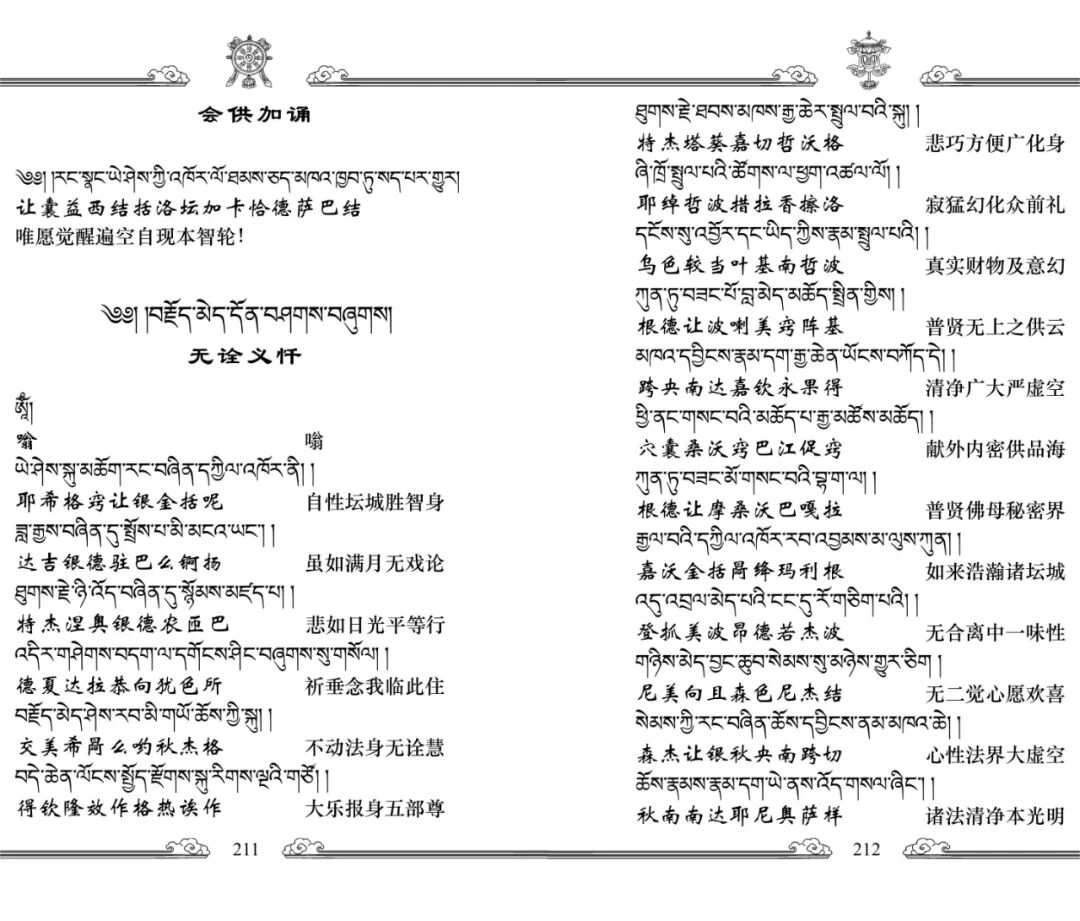 会供加诵
༄༅། །རང་སྣང་ཡེ་ཤེས་ཀྱི་འཁོར་ལོ་ཐམས་ཅད་མཁའ་ཁྱབ་ཏུ་སད་པར་གྱུར།
让囊益西结括洛坛加卡恰德萨巴结
唯愿觉醒遍空自现本智轮!
༄༅། །བརྗོད་མེད་དོན་བཤགས་བཞུགས།
无诠义忏
ཨོཾ།
嗡 嗡
ཡེ་ཤེས་སྐུ་མཆོག་རང་བཞིན་དཀྱིལ་འཁོར་ནི། །
耶希格窍让银金括呢 自性坛城胜智身
ཟླ་རྒྱས་བཞིན་དུ་སྤྲོས་པ་མི་མངའ་ཡང་། །
达吉银德驻巴么锕扬 虽如满月无戏论
ཐུགས་རྗེ་ཉི་འོད་བཞིན་དུ་སྙོམས་མཛད་པ། །
特杰涅奥银德农匝巴 悲如日光平等行
འདིར་གཤེགས་བདག་ལ་དགོངས་ཤིང་བཞུགས་སུ་གསོལ། །
德夏达拉恭向犹色所 祈垂念我临此住
བརྗོད་མེད་ཤེས་རབ་མི་གཡོ་ཆོས་ཀྱི་སྐུ། །
交美希咼么哟秋杰格 不动法身无诠慧
བདེ་ཆེན་ལོངས་སྤྱོད་རྫོགས་སྐུ་རིགས་ལྔའི་གཙོ། །
得钦隆效作格热诶作 大乐报身五部尊
211
ཐུགས་རྗེ་ཐབས་མཁས་རྒྱ་ཆེར་སྤྲུལ་བའི་སྐུ། །
特杰塔葵嘉切哲沃格 悲巧方便广化身
ཞི་ཁྲོ་སྤྲུལ་པའི་ཚོགས་ལ་ཕྱག་འཚལ་ལོ། །
耶绰哲波措拉香擦洛 寂猛幻化众前礼
དངོས་སུ་འབྱོར་དང་ཡིད་ཀྱིས་རྣམ་སྤྲུལ་པའི། །
乌色较当叶基南哲波 真实财物及意幻
ཀུན་ཏུ་བཟང་པོ་བླ་མེད་མཆོད་སྤྲིན་གྱིས། །
根德让波喇美窍阵基 普贤无上之供云
མཁའ་དབྱིངས་རྣམ་དག་རྒྱ་ཆེན་ཡོངས་བཀོད་དེ། །
跨央南达嘉钦永果得 清净广大严虚空
ཕྱི་ནང་གསང་བའི་མཆོད་པ་རྒྱ་མཚོས་མཆོད། །
穴囊桑沃窍巴江促窍 献外内密供品海
ཀུན་ཏུ་བཟང་མོ་གསང་བའི་བྷ་ག་ལ། །
根德让摩桑沃巴嘎拉 普贤佛母秘密界
རྒྱལ་བའི་དཀྱིལ་འཁོར་རབ་འབྱམས་མ་ལུས་ཀུན། །
嘉沃金括咼绛玛利根 如来浩瀚诸坛城
འདུ་འབྲལ་མེད་པའི་ངང་དུ་རོ་གཅིག་པའི། །
登抓美波昂德若杰波 无合离中一味性
གཉིས་མེད་བྱང་ཆུབ་སེམས་སུ་མཉེས་གྱུར་ཅིག །
尼美向且森色尼杰结 无二觉心愿欢喜
སེམས་ཀྱི་རང་བཞིན་ཆོས་དབྱིངས་ནམ་མཁའ་ཆེ། །
森杰让银秋央南跨切 心性法界大虚空
ཆོས་རྣམས་རྣམ་དག་ཡེ་ནས་འོད་གསལ་ཞིང་། །
秋南南达耶尼奥萨样 诸法清净本光明
212